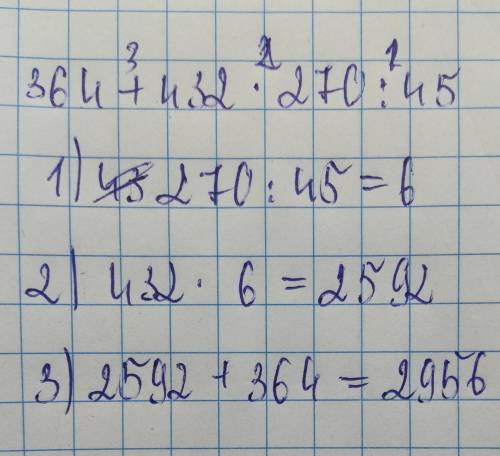 3 2 1
364 + 432 · 270 : 45
1) 45 270 : 45 = 6
2) 432 · 6 = 2592
3) 2592 + 364 = 2956